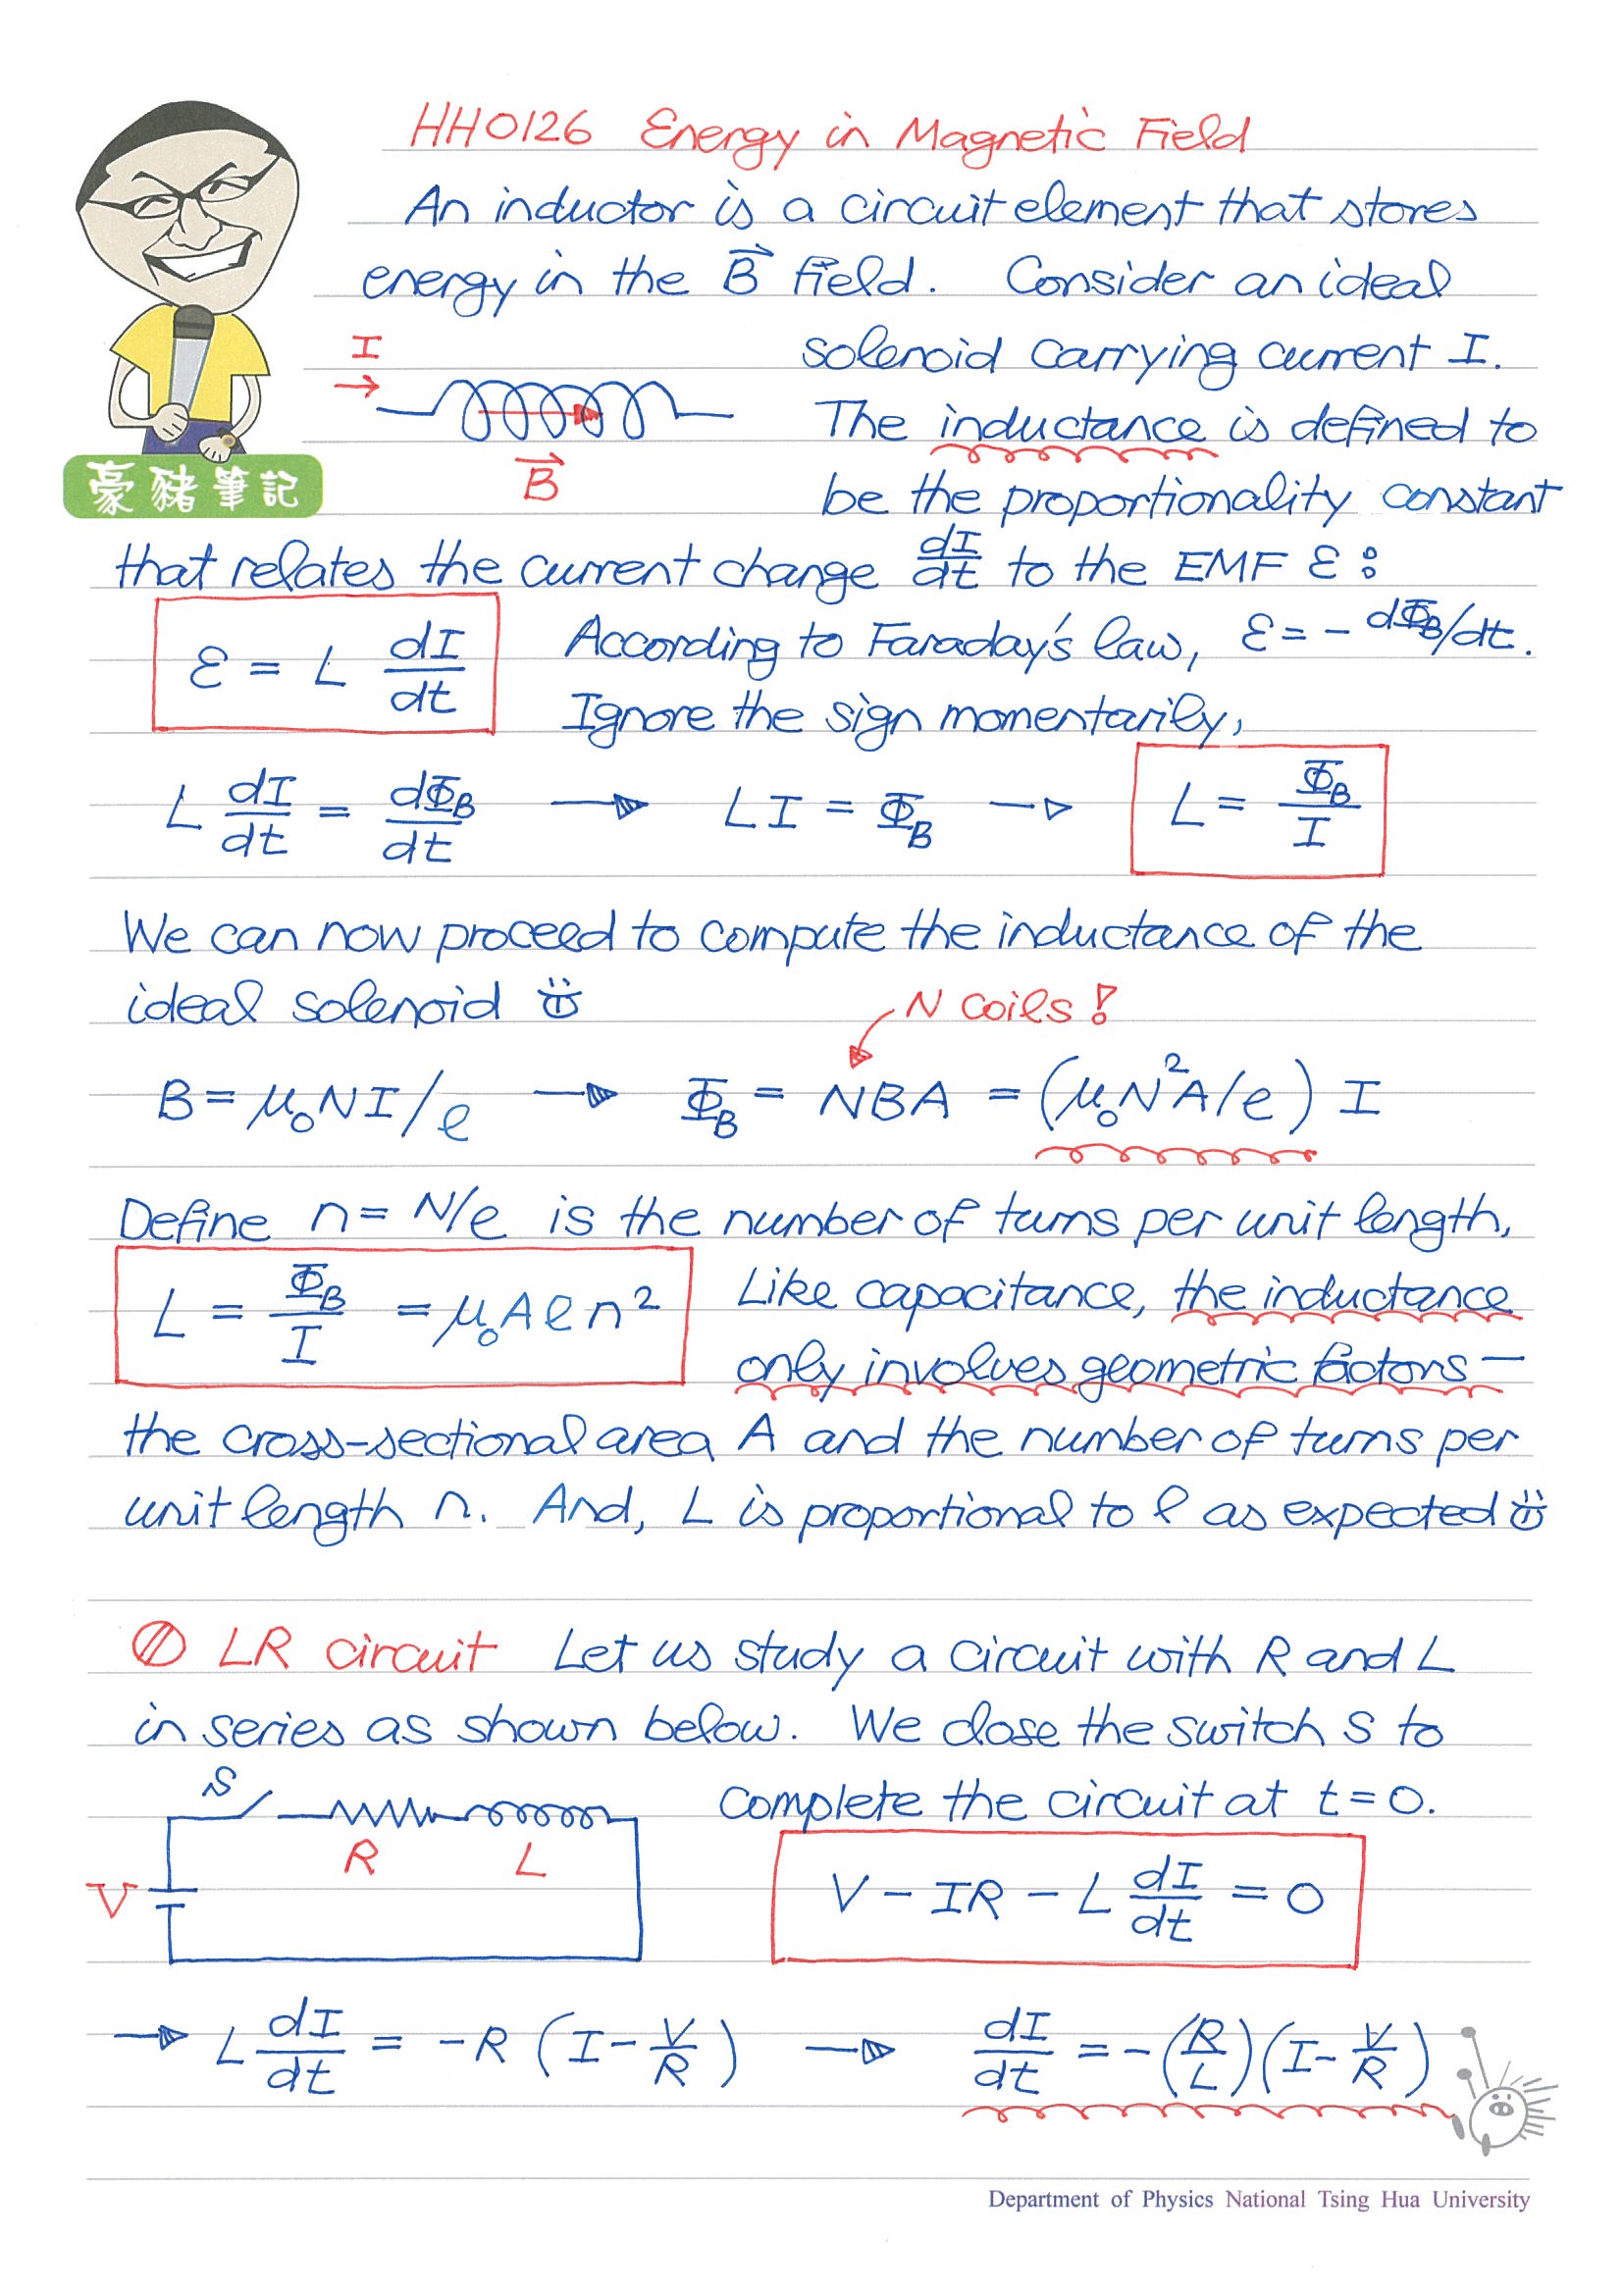 HH0126 Energy in Magnetic Field
An inductor is a circuit element that stores
energy in the B⃗ field. Consider an ideal
solenoid carrying current I.
I
The inductance is defined to
B⃗
豪豬筆記
be the proportionality constant
that relates the current change dI/dt to the EMF ℰ:
ℰ = L dI/dt
According to Faraday's law, ℰ = - dΦ_B/dt.
Ignore the sign momentarily,
L dI/dt = dΦ_B/dt → LI = Φ_B → L = Φ_B/I
We can now proceed to compute the inductance of the
ideal solenoid
N coils!
B = μ₀NI/ℓ → Φ_B = NBA = (μ₀N²A/ℓ) I
Define n = N/ℓ is the number of turns per unit length,
L = Φ_B/I = μ₀Aℓn²
Like capacitance, the inductance
only involves geometric factors —
the cross-sectional area A and the number of turns per
unit length n. And, L is proportional to ℓ as expected
LR circuit Let us study a circuit with R and L
in series as shown below. We close the switch S to
S
complete the circuit at t=0.
R L
V
V - IR - L dI/dt = 0
→ L dI/dt = -R (I - V/R) → dI/dt = -(R/L)(I - V/R)
Department of Physics National Tsing Hua University